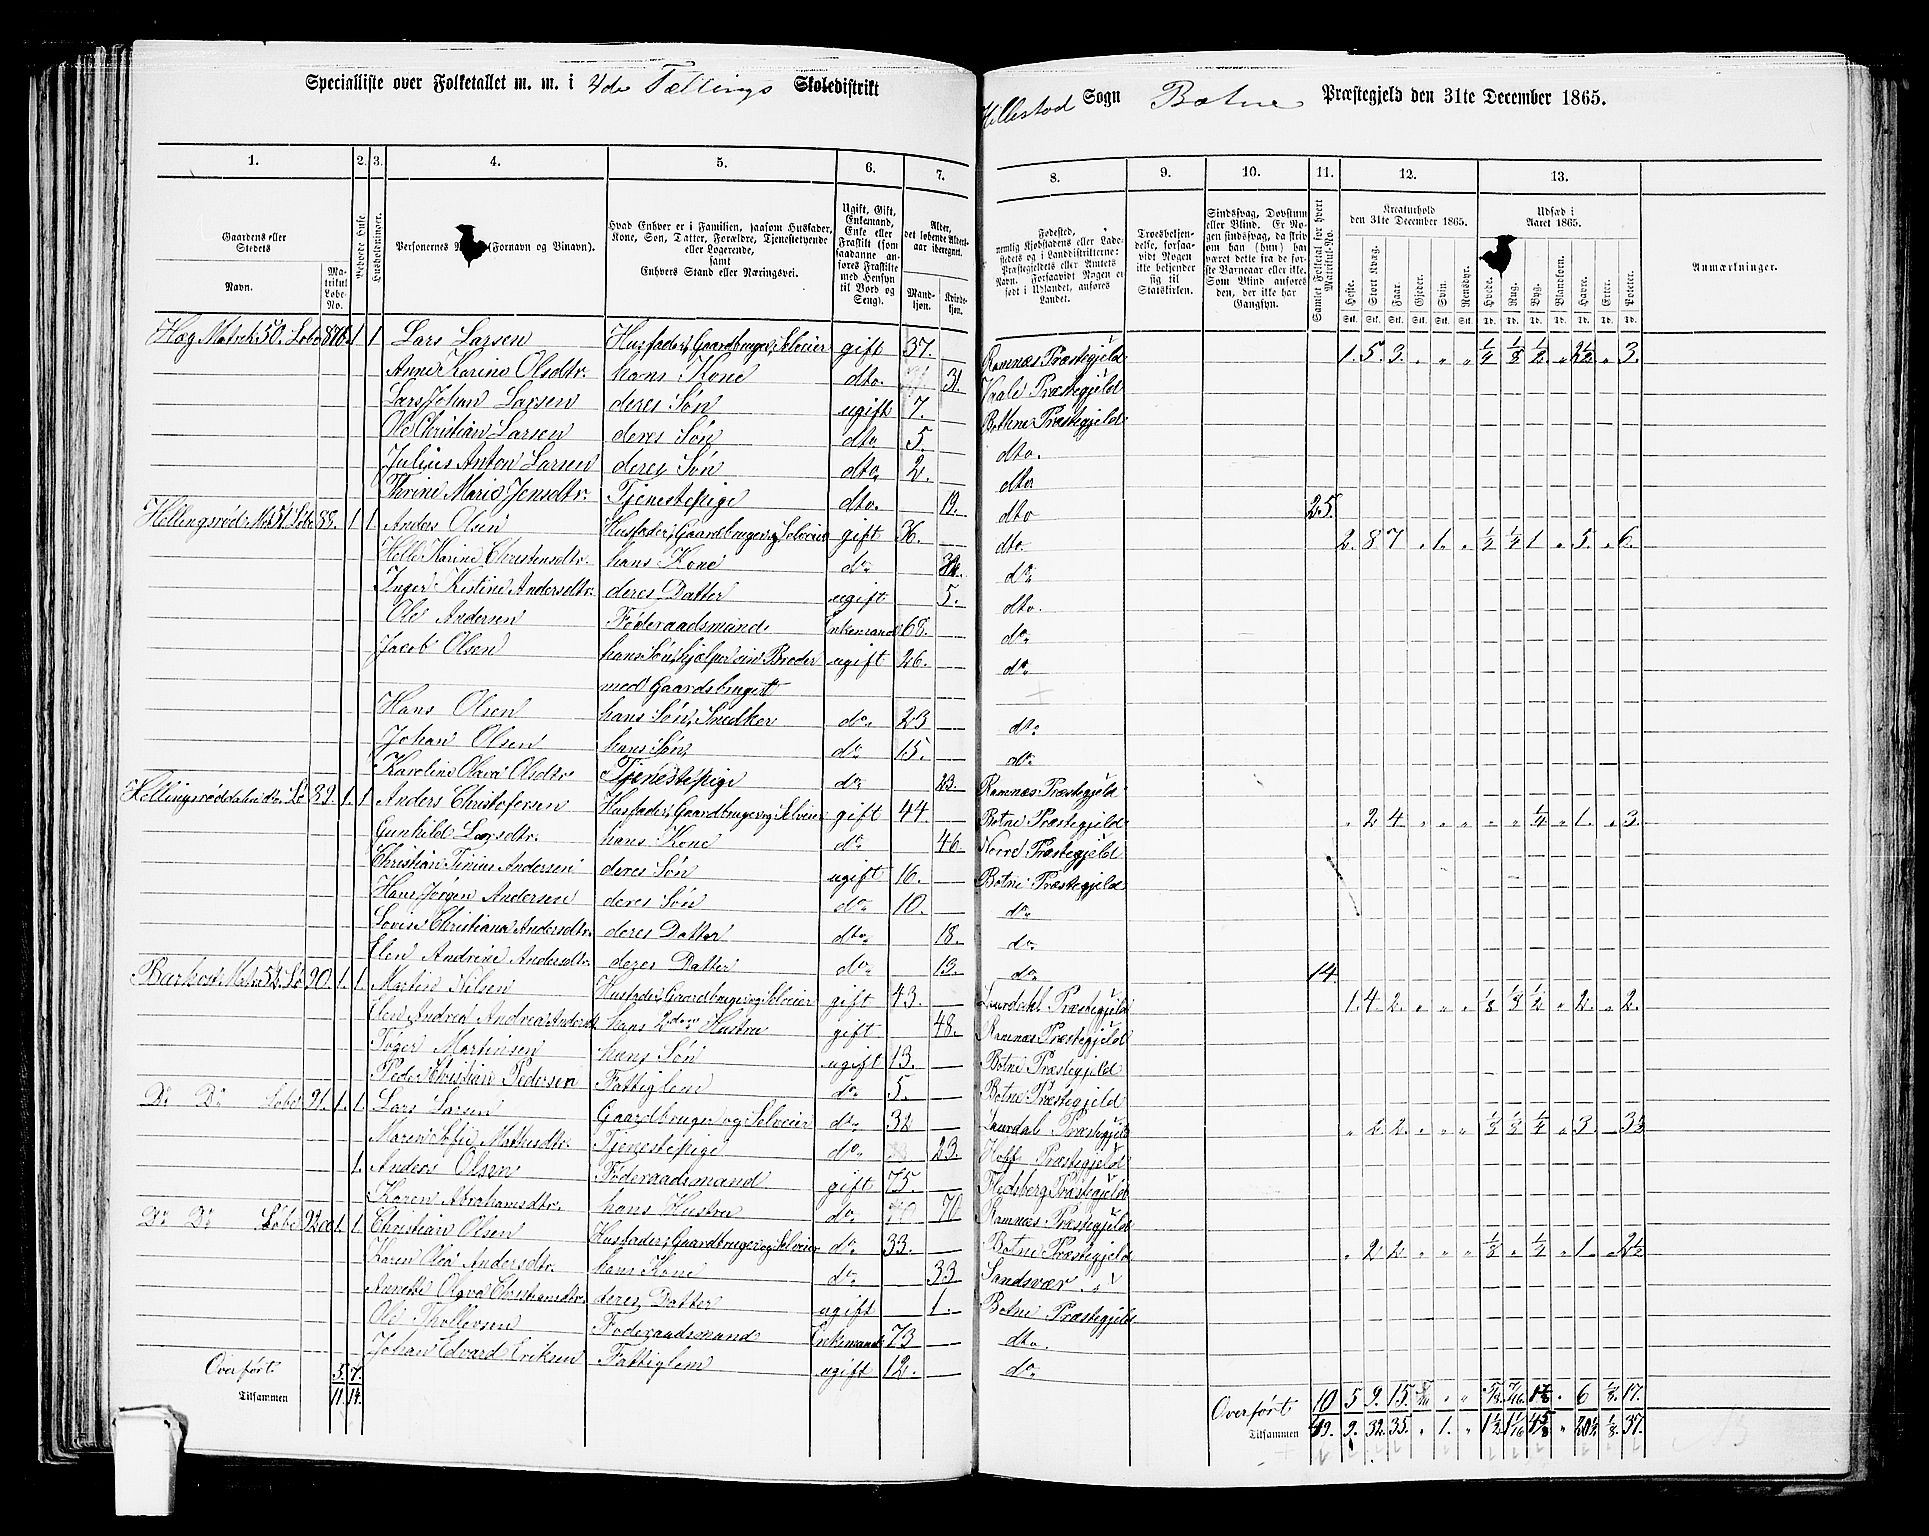 Specialliste over Folketallet m. m. i 4de Tællings Skoledistrikt
Hillestad Sogn Botne Præstegjeld den 31te December 1865.
1. 2. 3. 4. 5. 6. 7. 8. 9. 10. 11. 12. 13.
Gaardens eller Stedets
Navn.
Matrikul Løbe-No.
Beboede Huse
Husholdninger.
Personernes (Fornavn og Vinavn).
Hvad Enhver er i Familien, saasom Husfader, Kone, Søn, Datter, Forældre, Tjenestetyende eller Logerende, samt Enhvers Stand eller Næringsvei.
Ugift, Gift, Enkemand, Enke eller Fraskilt (saadanne anføres Fraskilte med Hensyn til Bord og Seng).
Alder, det løbende Aldersaar iberegnet.
Mandkjøn. Kvindekjøn.
Fødested, nemlig Kjøbstadens eller Ladestedets og i Landdistrikterne: Præstegjeldets eller Amtets Navn. Forsaavidt Nogen er født i Udlandet, anføres Landet.
Troesbekjendelse, forsaavidt Nogen ikke bekjender sig til Statskirken.
Sindssvag, Døvstum eller Blind. Er Nogen sindssvag, da skrives om han (hun) har været dette fra de første Barneaar eller ikke. Som Blind anføres den, der ikke har Gangsyn.
Samlet Folketal for hvert Matrikul-No.
Kreaturhold den 31te December 1865.
Heste. Stort Kvæg. Faar. Gjeder. Svin. Rensdyr.
Udsæd i Aaret 1865.
Hvede. Rug. Byg. Blandkorn. Havre. Erter. Poteter.
Anmærkninger.
Stk. Stk. Stk. Stk. Stk. Stk. Td. Td. Td. Td. Td. Td. Td.
Hag Matrik 50. Løbe 87 1 1 Lars Larsen Husfader, Gaardbruger, Selveier gift 37. Ramnæs Præstegjeld 1. 5. 3. „ „ „ 1/4 1/8 1/2 „ 2 1/2 „ 3.
Anne Karine Olsdtr. hans Kone dto. 31. Vaale Præstegjeld
Lars Johan Larsen deres Søn ugift 7. Bottne Præstegjeld
Ole Christian Larsen deres Søn dto 5. dto.
Julius Anton Larsen deres Søn dto 2. dto
Thrine Marie Jensdtr. Tjenestepige dto. 19. dto 25.
Hellingsrød Mat 51 Løbe 88. 1 1 Anders Olsen Husfader, Gaardbruger og Selveier gift 36. dto. 2. 8 7 „ 1. „ 1/2 1/2 1 „ 5. „ 6.
Helle Karine Christensdtr. hans Kone do d°
Inger Kistine Andersdtr. deres Datter ugift 5. dto.
Ole Andersen Føderaadsmand Enkemand 68. do
Jacob Olsen hans Søn, hjælper sin Broder ugift 26. do
med Gaardsbruget
Hans Olsen hans Søn, Snedker do 23 do.
Johan Olsen hans Søn do 15. do
Karoline Olava Olsdtr. Tjenestepige do 23. Ramnæs Præstegjeld
Hellingsrøddalen do. Lø 89. 1. 1 Anders Christofersen Husfader, Gaardbruger og Selveier gift 44. Botne Præstegjeld „ 2 4 „ „ „ „ „ 1/4 „ 1. „ 3.
Gunhild Larsdtr. hans Kone do 46. Præstegjeld
Christian Tinius Andersen deres Søn ugift 16. Botne Præstegjeld
Hans Jørgen Andersen deres Søn do 10. do
Lovise Christiana Andersdtr. deres Datter dto 18. do
Elen Andrine Andersdtr. deres Datter do 13. do 14.
Matr 52. Lø 90. 1. 1 Martin Nilsen Husfader, Gaardbruger og Selveier gift 43. Præstegjeld 1. 4. 2. „ „ „ 1/8 1/8 1/2 „ 2. „ 2.
Elen Andrea Andrea Andersdt hans 2den Hustru gift 48. Ramnæs Præstegjeld
Martinsen hans Søn ugift 13. Botne Præstegjeld
Peder Christian Pedersen Fattiglem do 5. Botne Præstegjeld
Do Do Løbe 91. 1. 1. Lars Larsen Gaardbruger og Selveier do 32 Laurdal Præstegjeld „ 2. 2. „ „ „ 1/8 1/8 1/4 „ 3. 3 1/2
Maren Sofie Mathisdtr. Tjenestepige do 23. Hoff Præstegjeld
1. Anders Olsen Føderaadsmand gift 75. Flesberg Præstegjeld
Karen Abrahamsdtr. hans Hustru do 70 Ramnæs Præstegjeld
Do Do Løbe 92 1. 1. Christian Olsen Husfader, Gaardbruger og Selveier do 33. Botne Præstegjeld „ 2 2. „ „ „ 1/8 „ 1/2 „ 1. „ 2 1/2
Karen Olea Andersdtr. hans Kone do 33 Sandsvær
Annette Olava Christiansdtr. deres Datter ugift 1. Botne Præstegjeld
Ole Thollevsen Føderaadsmand Enkemand 73 dto.
Johan Edvard Eriksen Fattiglem ugift 12. do
Overført 5. 7. Overført 10 5 9. 15. „ „ 6 1/8 17.
Tilsammen 11. 14. Tilsammen 49. 9. 32. 35. „ 1. „ 1 1/2 1 1/16 4 5/8 „ 20 1/2 1/8 37.